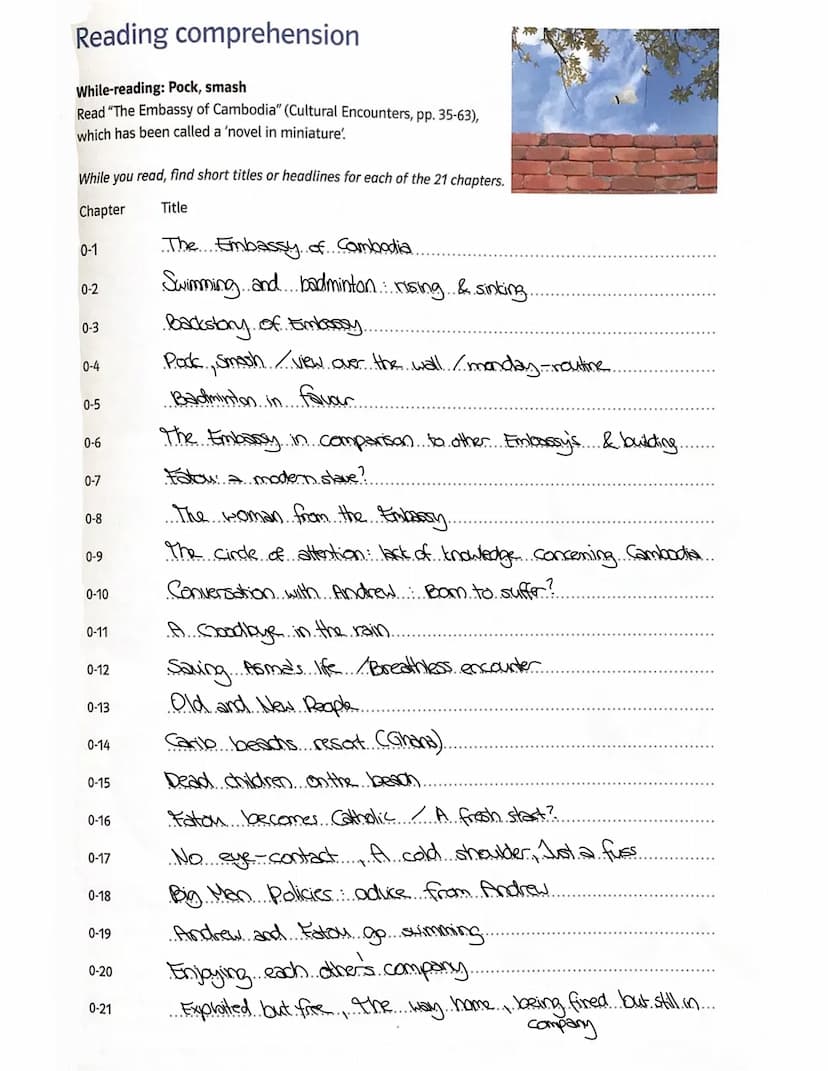 Reading comprehension
While-reading: Pock, smash
Read "The Embassy of Cambodia" (Cultural Encounters, pp. 35-63),
which has been called a 'novel in miniature'.
While you read, find short titles or headlines for each of the 21 chapters.
Chapter Title
0-1 The Embassy of Cambodia
0-2 Swimming and badminton: rising & sinking
0-3 Backstory of Embassy
0-4 Pock, Smash / view over the wall / monday-routine
0-5 Badminton in favor
0-6 The Embassy in comparison to other Embassy's & building
0-7 Fatou: a modern slave?
0-8 The woman from the Embassy
0-9 The circle of attention: lack of knowledge concerning Cambodia
0-10 Conversation with Andrew: Born to suffer?
0-11 A Goodbye in the rain
0-12 Saving Asma's life / Breathless encounter
0-13 Old and New People
0-14 Carib beachs resort (Ghana)
0-15 Dead children on the beach
0-16 Fatou becomes Catholic / A fresh start?
0-17 No eye-contact, A cold shoulder, Just a fuss
0-18 Big Men Policies: advice from Andrew
0-19 Andrew and Fatou go swimming
0-20 Enjoying each other's company
0-21 Exploited but free, the way home, being fired but still in
company